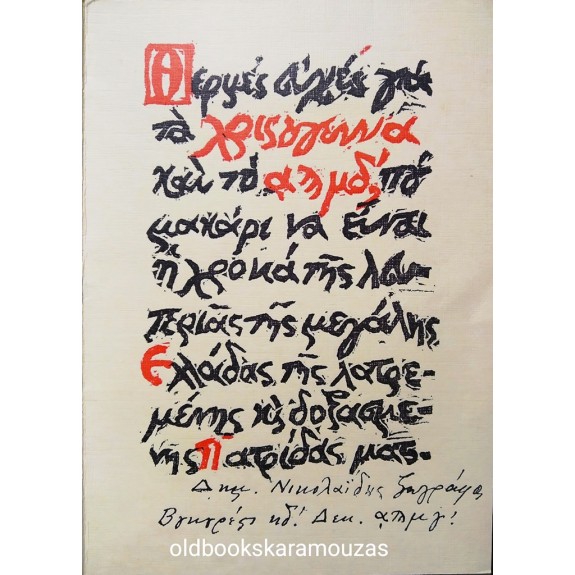 Θερμές εὐχές γιὰ
τὰ Χριστούγεννα
καὶ τὸ ͵αϡμδ´, ποὺ
μακάρι νὰ εἶναι
ἡ χρονιά τῆς λευ-
τεριᾶς τῆς μεγάλης
Ελλάδας τῆς λατρε-
μένης κι δοξασμέ-
νης Πατρίδας μας.
Δημ. Νικολαΐδης ζωγράφος
κδ! Δεκ. αϡμγ!
oldbookskaramouzas